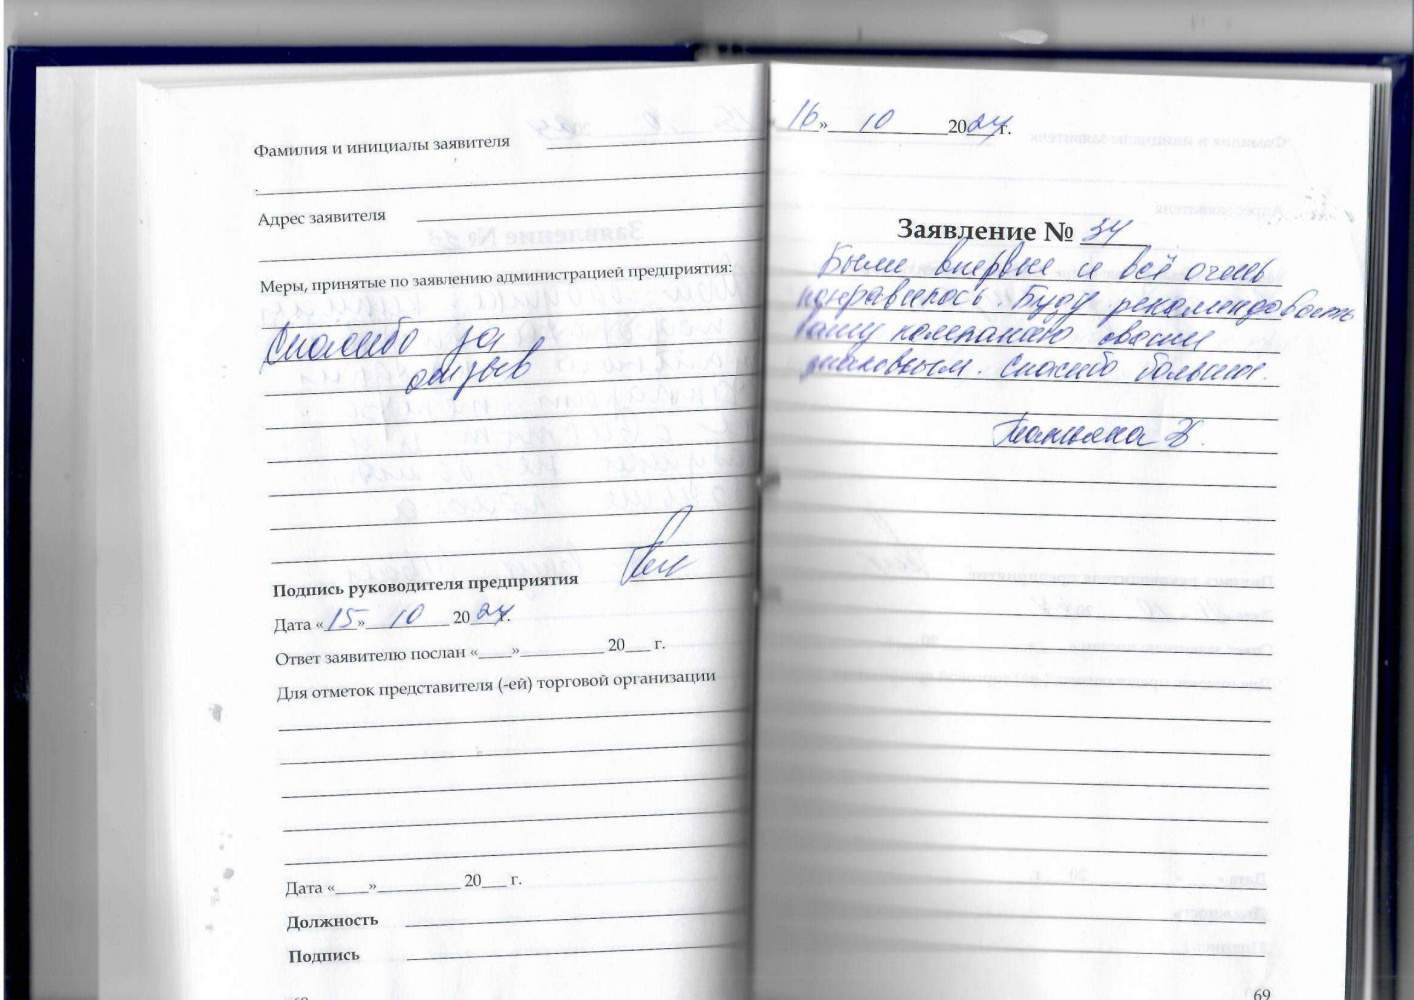 Фамилия и инициалы заявителя
Адрес заявителя
Меры, принятые по заявлению администрацией предприятия:
Спасибо за
отзыв
Подпись руководителя предприятия
Дата «15» 10 2024г.
Ответ заявителю послан «____»__________ 20___ г.
Для отметок представителя (-ей) торговой организации
Дата «____»__________ 20___ г.
Должность
Подпись
16» 10 2024г.
Заявление № 34
Были впервые и всё очень
понравилось. Буду рекомендовать
вашу компанию своим
знакомым. Спасибо большое.
Татьяна Ж.
69